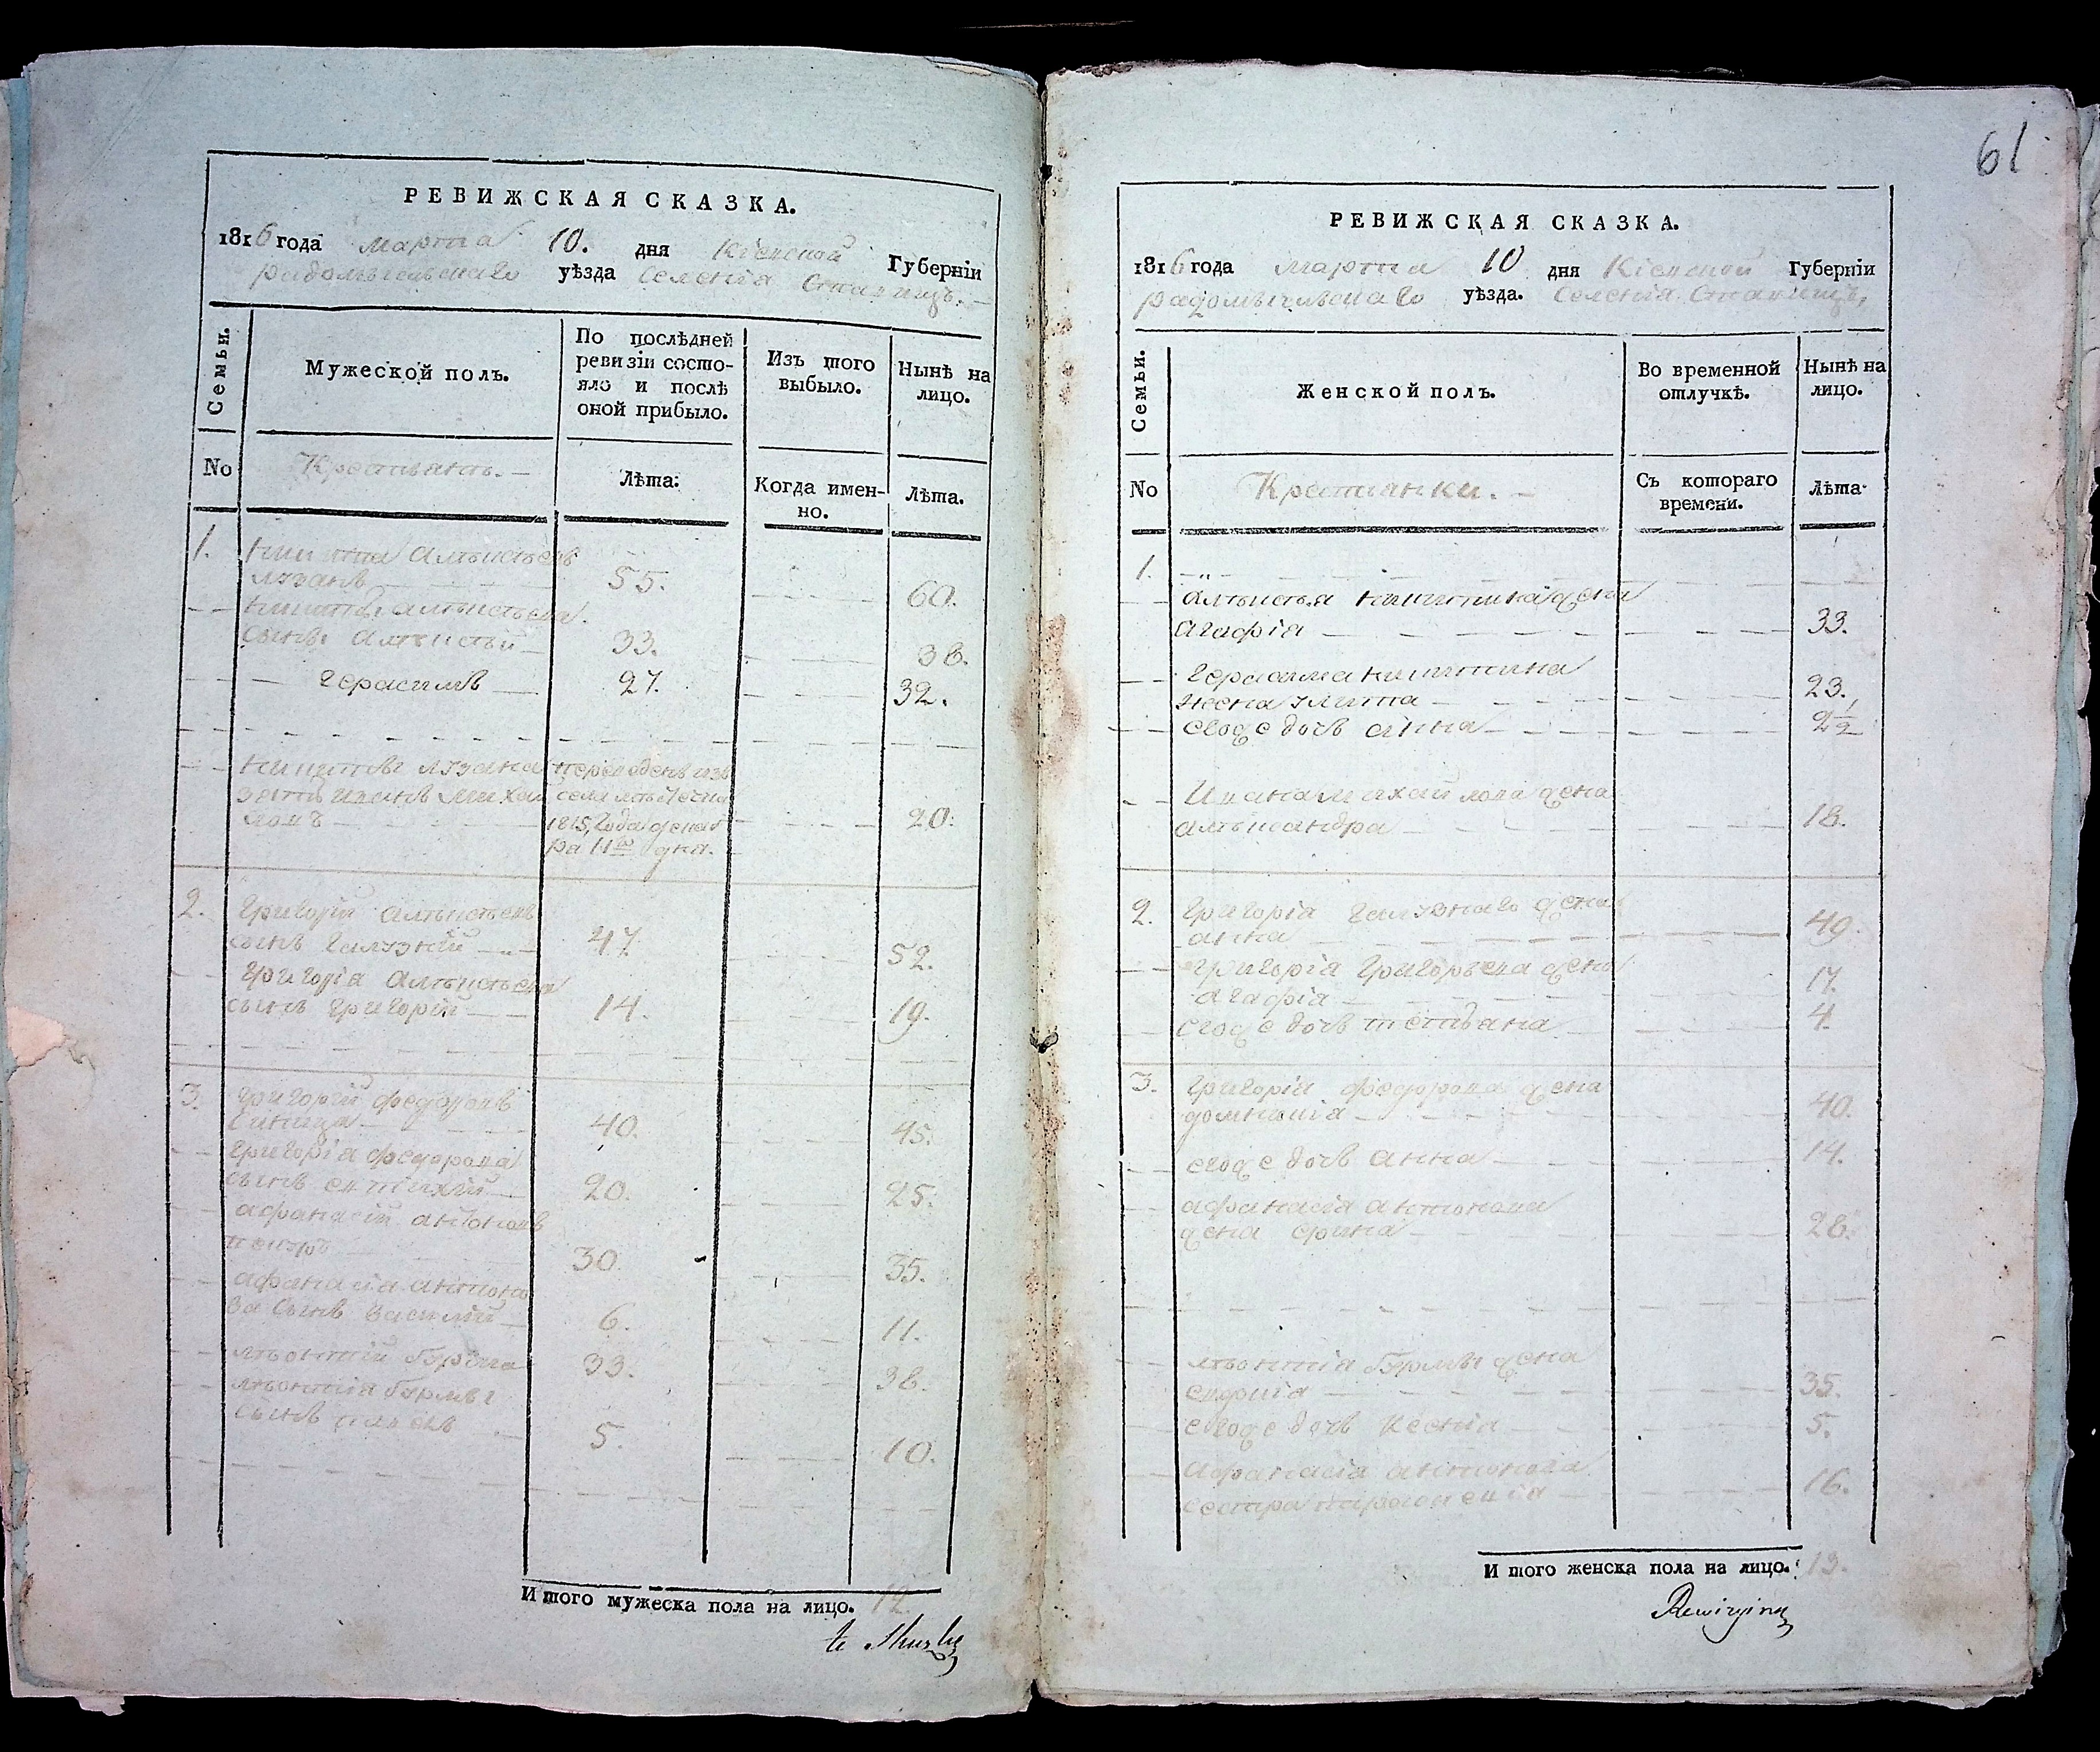 РЕВИЖСКАЯ СКАЗКА.
1816 года марта 10. дня Кіевской Губерніи
радомысльскаго уѣзда селенія Ставищъ.
Семьи.
Мужеской полъ.
По послѣдней
ревизіи состо-
яло и послѣ
оной прибыло.
Изъ того
выбыло.
Нынѣ на
лицо.
No
Крестьянъ.
Лѣта.
Когда имен-
но.
Лѣта.
1. Никита Алексѣевъ
55. 60.
Никиты Алексѣева
сынъ Алексѣй 33. 38.
Герасимъ 27. 32.
Никиты
зять Иванъ Михай
ловъ
переведенъ изъ
села
1815 года декаб
ря 11го дня.
20.
2. Григорій Алексѣевъ
сынъ Галузкій 47. 52.
Григорія Алексѣева
сынъ Григорій 14. 19.
3. Григорій Федоровъ
Синица 40. 45.
Григорія Федорова
сынъ Евтихій 20. 25.
Афанасій Антоновъ
30. 35.
Афанасія Антоно
ва сынъ Василій 6. 11.
Леонтій Бурма 33. 38.
Леонтія Бурмы
сынъ 5. 10.
Итого мужеска пола на лицо. 12.
61
РЕВИЖСКАЯ СКАЗКА.
1816 года марта 10 дня Кіевской Губерніи
радомысльскаго уѣзда. селенія Ставищъ,
Семьи.
Женской полъ.
Во временной
отлучкѣ.
Нынѣ на
лицо.
No
Крестьянки.
Съ котораго
времени.
Лѣта
1.
Алексѣя Никитина жена
Агафія 33.
Герасима Никитина
жена Улита 23.
его же дочь Анна 2 1/2
Ивана Михайлова жена
Александра 18.
2. Григорія Галузкаго жена
Анна 49.
Григорія Григорьева жена
Агафія 17.
его же дочь Степана 4.
3. Григорія Федорова жена
Домникія 40.
его же дочь Анна 14.
Афанасія Антонова
жена Ирина 28.
Леонтія Бурмы жена
Евдокія 35.
его же дочь Ксенія 5.
Афанасія Антонова
сестра Параскевія 16.
Итого женска пола на лицо. 13.